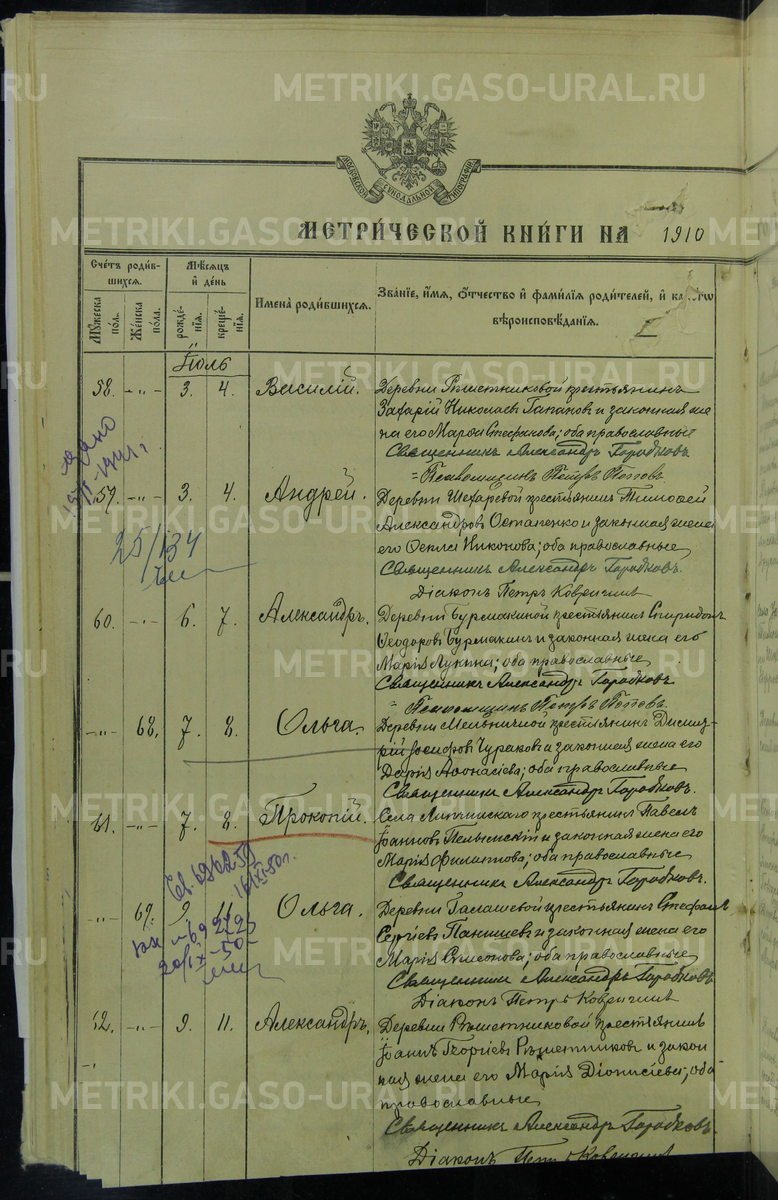 МОСКОВСКОЙ СѴНОДАЛЬНОЙ ТИПОГРАФІИ
МЕТРИ́ЧЕСКОЙ КНИ́ГИ НА 1910
Сче́тъ роди́в-
шихся.
Мꙋ́жеска по́л.
Же́нска по́ла.
Мѣ́сяцъ
и҆ де́нь
рожде́-
нїѧ.
креще́-
нїѧ.
И҆мена̀ роди́вшихсѧ.
Зва́нїе, и҆́мѧ, ѻ҆́тчество и҆ фами́лїѧ роди́телей, и҆
вѣроисповѣ́данїѧ.
Іюль
58. -"- 3. 4. Василій. Деревни Рѣшетниковой крестьянинъ
Захарій Николаевъ и законная же
на его Марѳа Стефанова; оба православные
Священникъ Александръ Городковъ.
Псаломщикъ Петръ Поповъ.
59. -"- 3. 4. Андрей. Деревни крестьянинъ Тимоѳей
Александровъ Остапенко и законная жена
его Никонова; оба православные
Священникъ Александръ Городковъ.
Діаконъ Петръ Ковригинъ
25/134
60. -"- 6. 7. Александръ. Деревни Бурмакиной крестьянинъ Спиридонъ
Ѳеодоровъ Бурмакинъ и законная жена его
Марія Лукина; оба православные
Священникъ Александръ Городковъ
Псаломщикъ Петръ Поповъ.
-"- 68. 7. 8. Ольга. Деревни Мельничной крестьянинъ Дмит-
рій Іосифовъ Чураковъ и законная жена его
Дарія Аѳонасіева; оба православные
Священникъ Александръ Городковъ.
61. -"- 7. 8. Прокопій. Села Липинскаго крестьянинъ Павелъ
Іоанновъ Пелымскій и законная жена его
Марія Филиппова; оба православные
Священникъ Александръ Городковъ.
-"- 69. 9. 11. Ольга. Деревни Галашевой крестьянинъ Стефанъ
Сергіевъ и законная жена его
Марія Симонова; оба православные
Священникъ Александръ Городковъ
Діаконъ Петръ Ковригинъ
62. -"- 9. 11. Александръ. Деревни Рѣшетниковой крестьянинъ
Іоаннъ Георгіевъ Рѣшетниковъ и закон
ная жена его Марія Діонисіева; оба
православные
Священникъ Александръ Городковъ.
Діаконъ Петръ Ковригинъ
METRIKI.GASO-URAL.RU